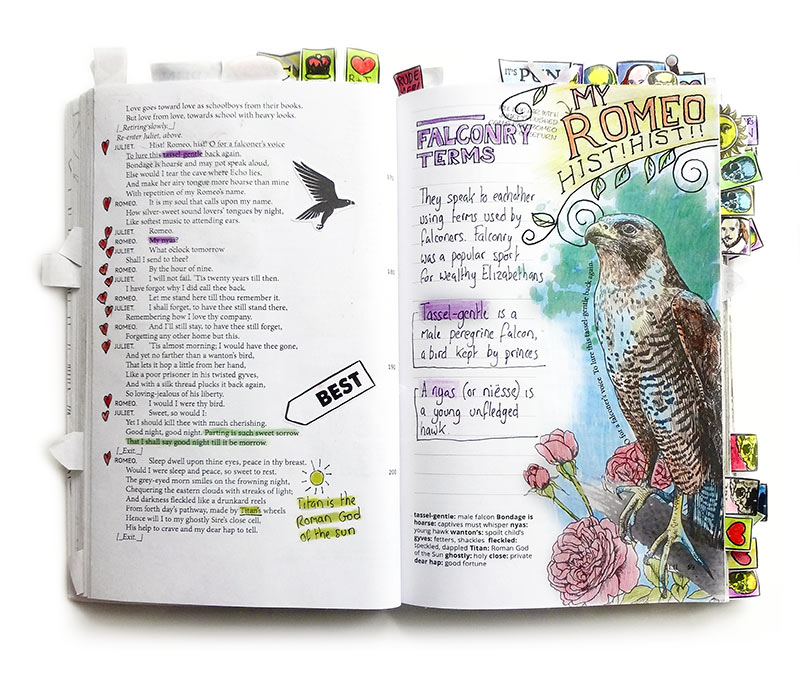 Love goes toward love as schoolboys from their books,
But love from love, towards school with heavy looks.
[_Retiring slowly._]
Re-enter Juliet, above.
JULIET. Hist! Romeo, hist! O for a falconer's voice
To lure this tassel-gentle back again.
Bondage is hoarse and may not speak aloud,
Else would I tear the cave where Echo lies,
And make her airy tongue more hoarse than mine
With repetition of my Romeo's name.
ROMEO. It is my soul that calls upon my name.
How silver-sweet sound lovers' tongues by night,
Like softest music to attending ears.
JULIET. Romeo.
ROMEO. My nyas?
JULIET. What o'clock tomorrow
Shall I send to thee?
ROMEO. By the hour of nine.
JULIET. I will not fail. 'Tis twenty years till then.
I have forgot why I did call thee back.
ROMEO. Let me stand here till thou remember it.
JULIET. I shall forget, to have thee still stand there,
Remembering how I love thy company.
ROMEO. And I'll still stay, to have thee still forget,
Forgetting any other home but this.
JULIET. 'Tis almost morning; I would have thee gone,
And yet no farther than a wanton's bird,
That lets it hop a little from her hand,
Like a poor prisoner in his twisted gyves,
And with a silk thread plucks it back again,
So loving-jealous of his liberty.
ROMEO. I would I were thy bird.
JULIET. Sweet, so would I:
Yet I should kill thee with much cherishing.
Good night, good night. Parting is such sweet sorrow
That I shall say good night till it be morrow.
[_Exit._]
ROMEO. Sleep dwell upon thine eyes, peace in thy breast.
Would I were sleep and peace, so sweet to rest.
The grey-eyed morn smiles on the frowning night,
Chequering the eastern clouds with streaks of light;
And darkness fleckled like a drunkard reels
From forth day's pathway, made by Titan's wheels
Hence will I to my ghostly Sire's close cell,
His help to crave and my dear hap to tell.
[_Exit._]
180
190
200
BEST
Titan is the
Roman God
of the sun
R+J
RUDE
IT'S PUN
MY
ROMEO
HIST! HIST!!
FALCONRY
TERMS
They speak to eachother
using terms used by
falconers. Falconry
was a popular sport
for wealthy Elizabethans
Tassel-gentle is a
male peregrine falcon,
a bird kept by princes
A nyas (or niësse) is
a young unfledged
hawk.
O for a falconer's voice To lure this tassel-gentle back again
tassel-gentle: male falcon Bondage is
hoarse: captives must whisper nyas:
young hawk wanton's: spoilt child's
gyves: fetters, shackles fleckled:
speckled, dappled Titan: Roman God
of the Sun ghostly: holy close: private
dear hap: good fortune